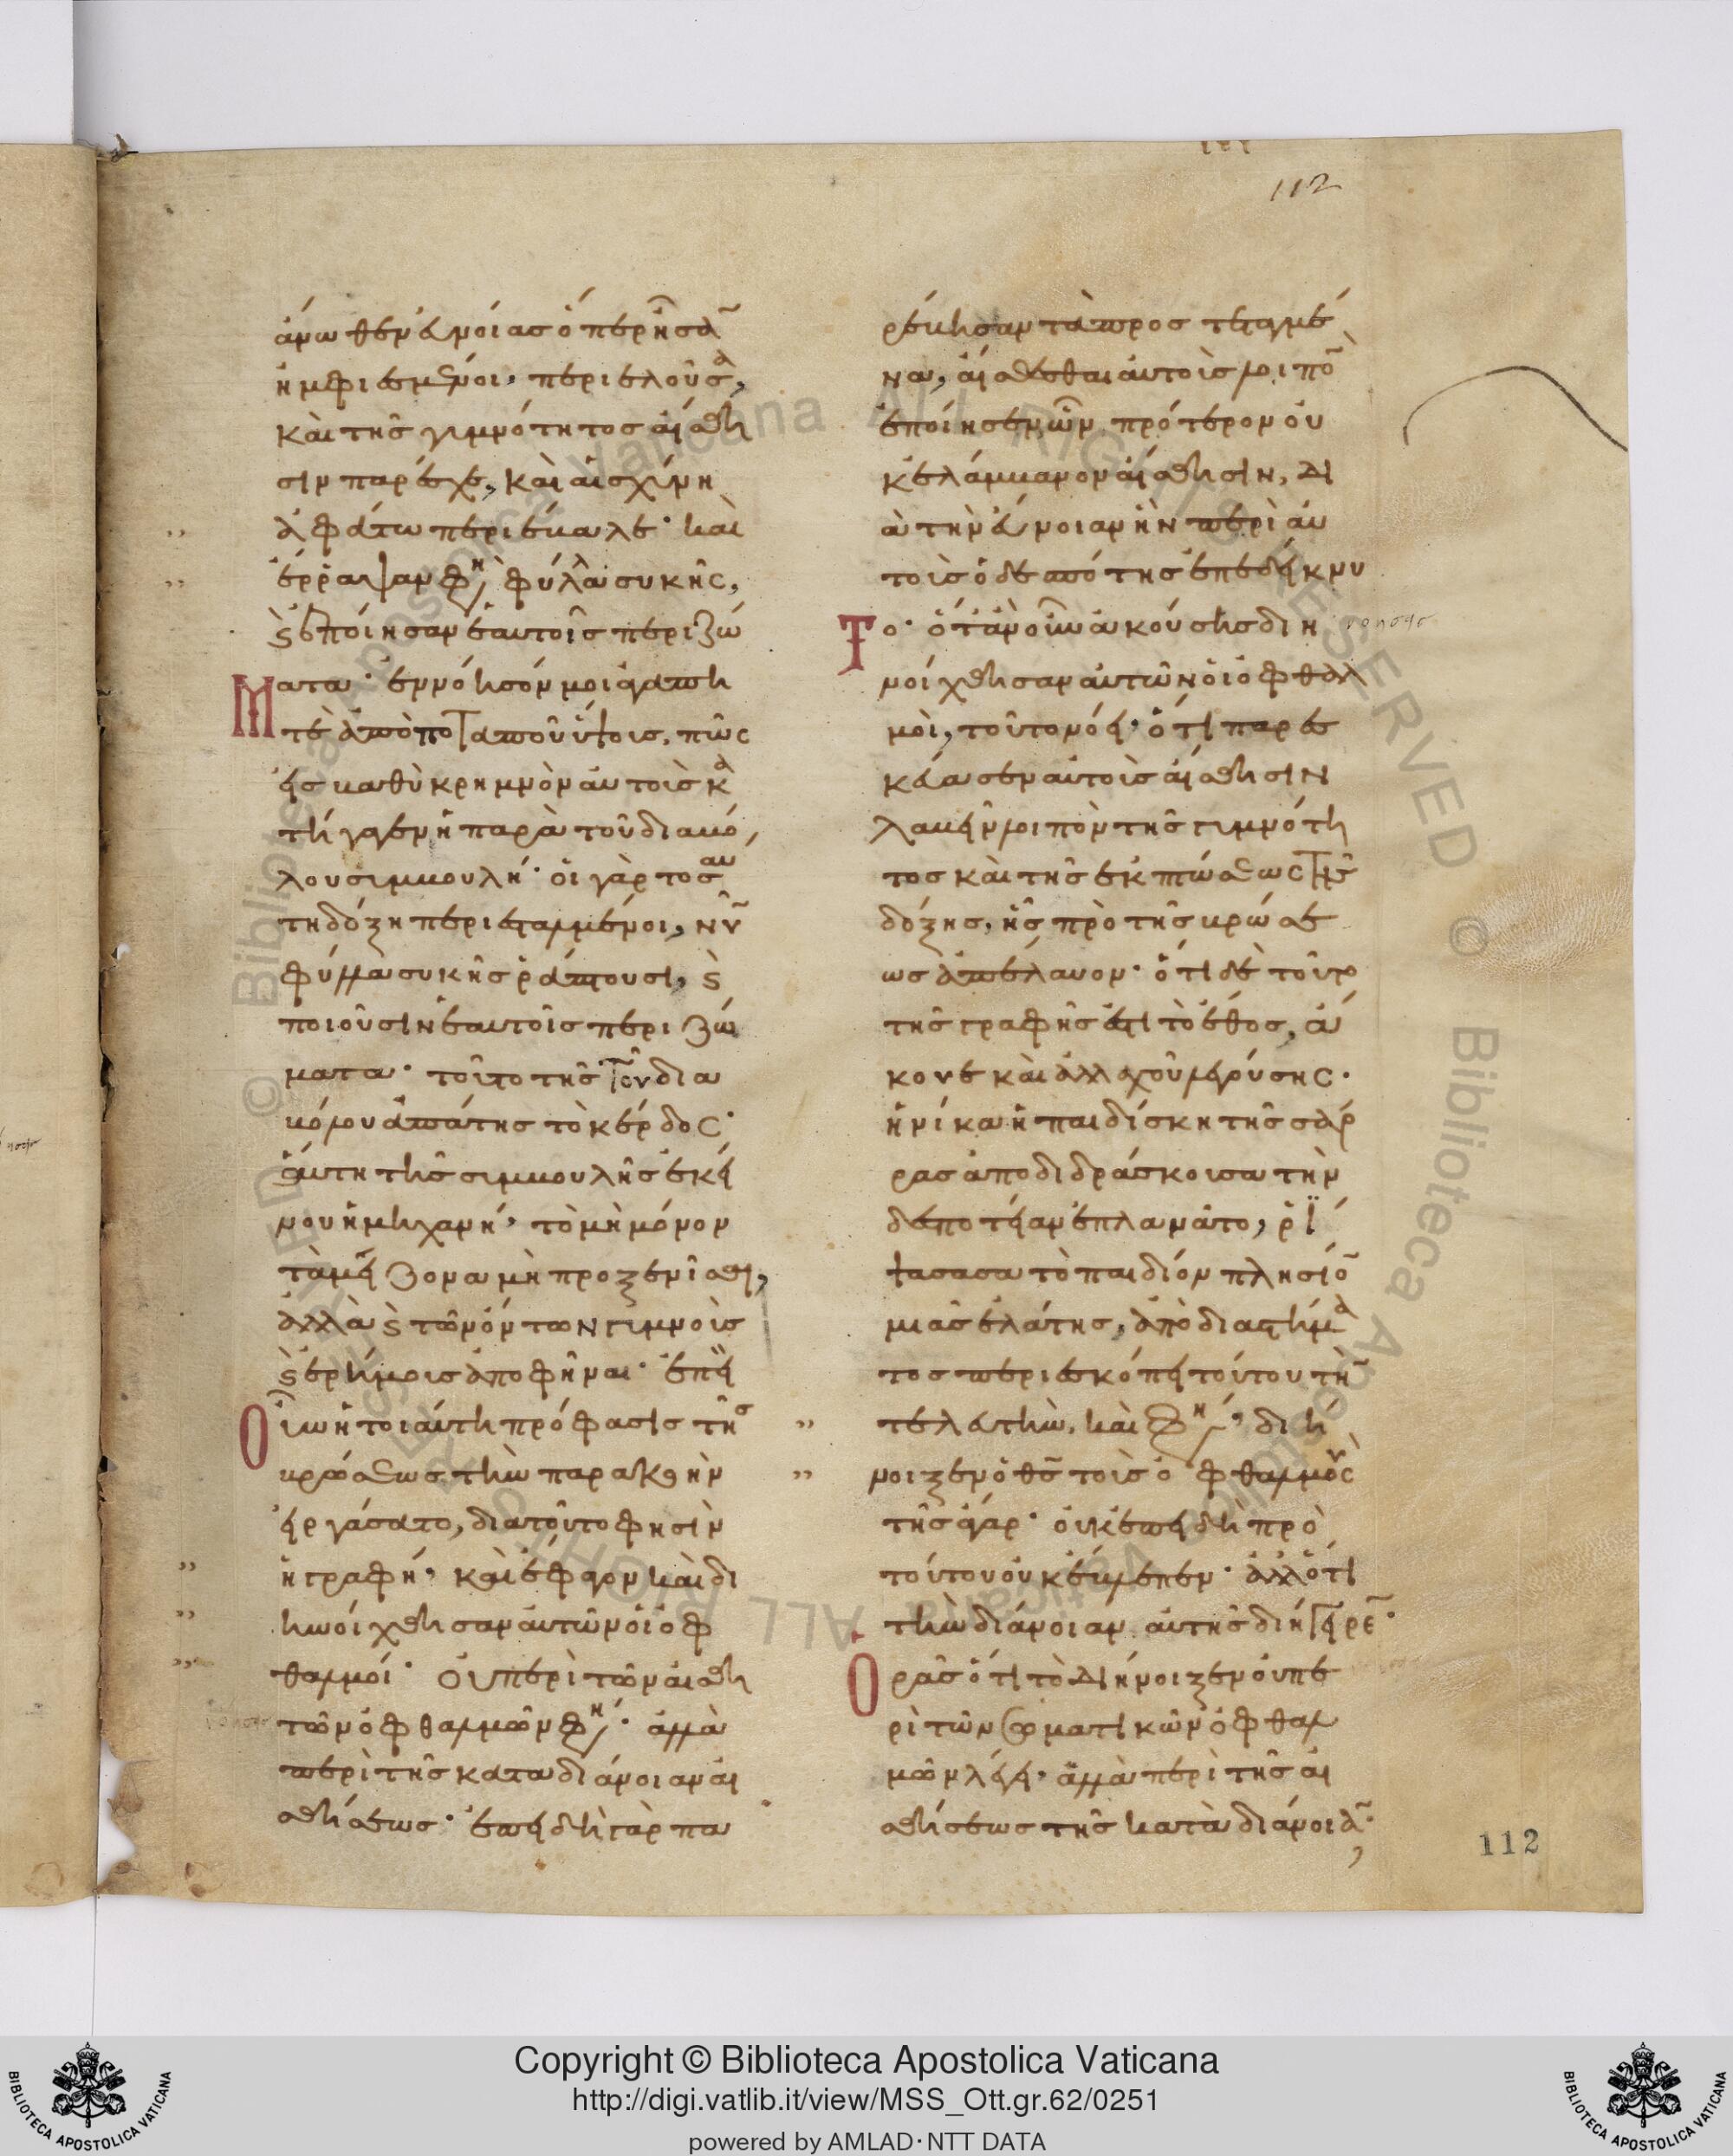 112
ἄνωθεν εὐνοίας ὅπερ ἦσαν
ἠμφιεσμένοι, περιελοῦσα,
καὶ τῆς γυμνότητος αἴσθη
σιν παρέσχε, καὶ αἰσχύνη
ἀφάτω περιέβαλε· καὶ
ἔρραψαν φησὶ φύλλα συκῆς,
καὶ ἐποίησαν ἑαυτοῖς περιζώ
ματα· ἐννόησόν μοι ἀγαπη
τὲ ἀπὸ ποταποῦ ὕψους, πῶς
εἰς βαθὺ κρημνὸν αὐτοὺς κα
τήγαγεν ἡ παρὰ τοῦ διαβό
λου συμβουλή· οἱ γὰρ τοσαύ
τη δόξη περιεσταλμένοι, νῦν
φύλλα συκῆς ῥάπτουσι, καὶ
ποιοῦσιν ἑαυτοῖς περιζώ
ματα· τοῦτο τῆς τοῦ δια
βόλου ἀπάτης τὸ κέρδος·
αὕτη τῆς συμβουλῆς ἐκεί
νου ἡ μηχανή, τὸ μὴ μόνον
τὰ μείζονα μὴ προξενῆσαι,
ἀλλὰ καὶ τῶν ὄντων γυμνοὺς
καὶ ἐρήμους ἀποφῆναι· ἐπεὶ
οὖν ἡ τοιαύτη πρόφασις τῆς
βρώσεως τὴν παρακοὴν
εἰργάσατο, διατοῦτο φησὶν
ἡ γραφή, καὶ ἔφαγον καὶ δι
ηνοίχθησαν αὐτῶν οἱ ὀφ
θαλμοί· οὐ περὶ τῶν αἰσθη
τῶν ὀφθαλμῶν φησὶ· ἀλλὰ
περὶ τῆς κατα διάνοιαν αἰ
σθήσεως· ἐπειδὴ γὰρ πα
ρέβησαν τὰ προστεταγμέ
να, αἰσθέσθαι αὐτοὺς λοιπὸν
ἐποίησεν, ὧν πρότερον οὐ
κ ἐλάμβανον αἴσθησιν, δι
ὰ τὴν εὔνοιαν ἣν περὶ αὐ
τοὺς ὁ δεσπότης ἐπεδείκνυ
το· ὅταν οὖν ἀκούσης διη
νοίχθησαν αὐτῶν οἱ ὀφθαλ
μοὶ, τοῦτο νόει· ὅτι παρεσ
κεύασεν αὐτοὺς αἴσθησιν
λαβεῖν λοιπὸν τῆς γυμνότη
τος καὶ τῆς ἐκπτώσεως τῆς
δόξης, ἧς πρὸ τῆς βρώσε
ως ἀπέλαυον· ὅτι δὲ τοῦτο
τῆς γραφῆς ἐστὶ τὸ ἔθος, ἄ
κουε καὶ ἀλλαχοῦ λεγούσης·
ἡνίκα ἡ παιδίσκη τῆς σάρ
ρας ἀποδιδράσκουσα τὴν
δέσποτείαν ἐπλανᾶτο, ῥί
ψασασα τὸ παιδίον πλησίον
μιᾶς ἐλάτης, ἀπὸ διαστήμα
τος περιεσκόπει τούτου τὴν
τελευτὴν, καὶ φησὶ, διή
νοιξεν ὁ θς τοὺς ὀφθαλμοὺς
τῆς ἄγαρ· οὐκ ἐπειδὴ πρὸ
τούτου οὐκ ἔβλεπεν· ἀλλ' ὅτι
τὴν διάνοιαν αὐτῆς διήγειρεν·
ὁρᾶς ὅτι τὸ διήνοιξεν οὐ πε
ρὶ τῶν σωματικῶν ὀφθαλ
μῶν λέγει, ἀλλὰ περὶ τῆς αἰ
σθήσεως τῆς κατὰ διάνοιαν·
112
Copyright © Biblioteca Apostolica Vaticana
http://digi.vatlib.it/view/MSS_Ott.gr.62/0251
powered by AMLAD·NTT DATA
BIBLIOTECA APOSTOLICA VATICANA
BIBLIOTECA APOSTOLICA VATICANA